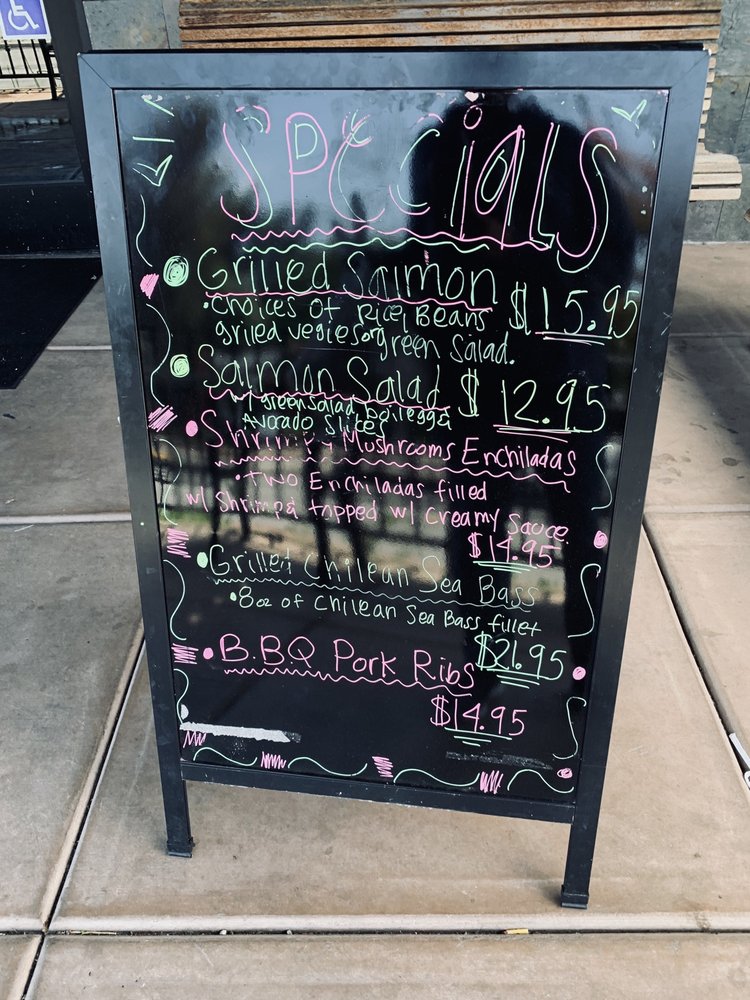 SPECiALS
Grilled Salmon
•Choices of Rice, Beans $15.95
griled vegies or green Salad.
Salmon Salad $12.95
w/ green salad boil egg &
Avorado Slices
Shrimp & Mushrooms Enchiladas
•Two Enchiladas filled
w/ Shrimp & topped w/ creamy sauce
$14.95
•Grilled Chilean Sea Bass
•8oz of Chilean Sea Bass fillet
$21.95
•B.B.Q Pork Ribs
$14.95